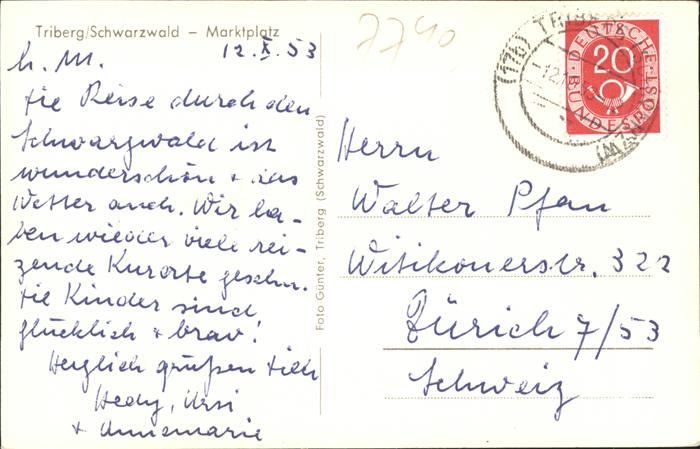 Triberg/Schwarzwald – Marktplatz
12. X. 53
L. M.
die Reise durch den
Schwarzwald ist
wunderschön + das
Wetter auch. Wir ha-
ben wieder viele rei-
zende Kurorte gesehn.
die Kinder sind
glücklich + brav!
Herzlich grüßen dich
Hedy, Ursi
+ Annemarie
Foto Günter, Triberg (Schwarzwald)
7740
(17b) TRIBERG
20
DEUTSCHE
BUNDESPOST
Herrn
Walter Pfan
Witikonerstr. 322
Zürich 7/53
Schweiz